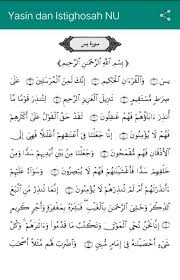 Yasin dan Istighosah NU
سورة يس
﴿بِسْمِ اللَّهِ الرَّحْمَنِ الرَّحِيمِ﴾
يس ۝ وَالْقُرْآنِ الْحَكِيمِ ۝ إِنَّكَ لَمِنَ الْمُرْسَلِينَ ۝ عَلَى
صِرَاطٍ مُسْتَقِيمٍ ۝ تَنْزِيلَ الْعَزِيزِ الرَّحِيمِ ۝ لِتُنْذِرَ قَوْمًا مَا
أُنْذِرَ آبَاؤُهُمْ فَهُمْ غَافِلُونَ ۝ لَقَدْ حَقَّ الْقَوْلُ عَلَى أَكْثَرِهِمْ
فَهُمْ لَا يُؤْمِنُونَ ۝ إِنَّا جَعَلْنَا فِي أَعْنَاقِهِمْ أَغْلَالًا فَهِيَ إِلَى
الْأَذْقَانِ فَهُمْ مُقْمَحُونَ ۝ وَجَعَلْنَا مِنْ بَيْنِ أَيْدِيهِمْ سَدًّا وَمِنْ
خَلْفِهِمْ سَدًّا فَأَغْشَيْنَاهُمْ فَهُمْ لَا يُبْصِرُونَ ۝ وَسَوَاءٌ عَلَيْهِمْ
أَأَنْذَرْتَهُمْ أَمْ لَمْ تُنْذِرْهُمْ لَا يُؤْمِنُونَ ۝ إِنَّمَا تُنْذِرُ مَنِ اتَّبَعَ
الذِّكْرَ وَخَشِيَ الرَّحْمَنَ بِالْغَيْبِ فَبَشِّرْهُ بِمَغْفِرَةٍ وَأَجْرٍ كَرِيمٍ
۝ إِنَّا نَحْنُ نُحْيِي الْمَوْتَى وَنَكْتُبُ مَا قَدَّمُوا وَآثَارَهُمْ وَكُلَّ
شَيْءٍ أَحْصَيْنَاهُ فِي إِمَامٍ مُبِينٍ ۝ وَاضْرِبْ لَهُمْ مَثَلًا أَصْحَابَ